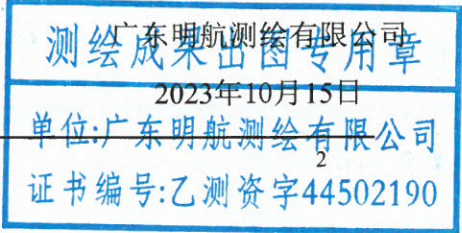 广东明航测绘有限公司
测绘成果出图专用章
2023年10月15日
单位:广东明航测绘有限公司
2
证书编号:乙测资字44502190